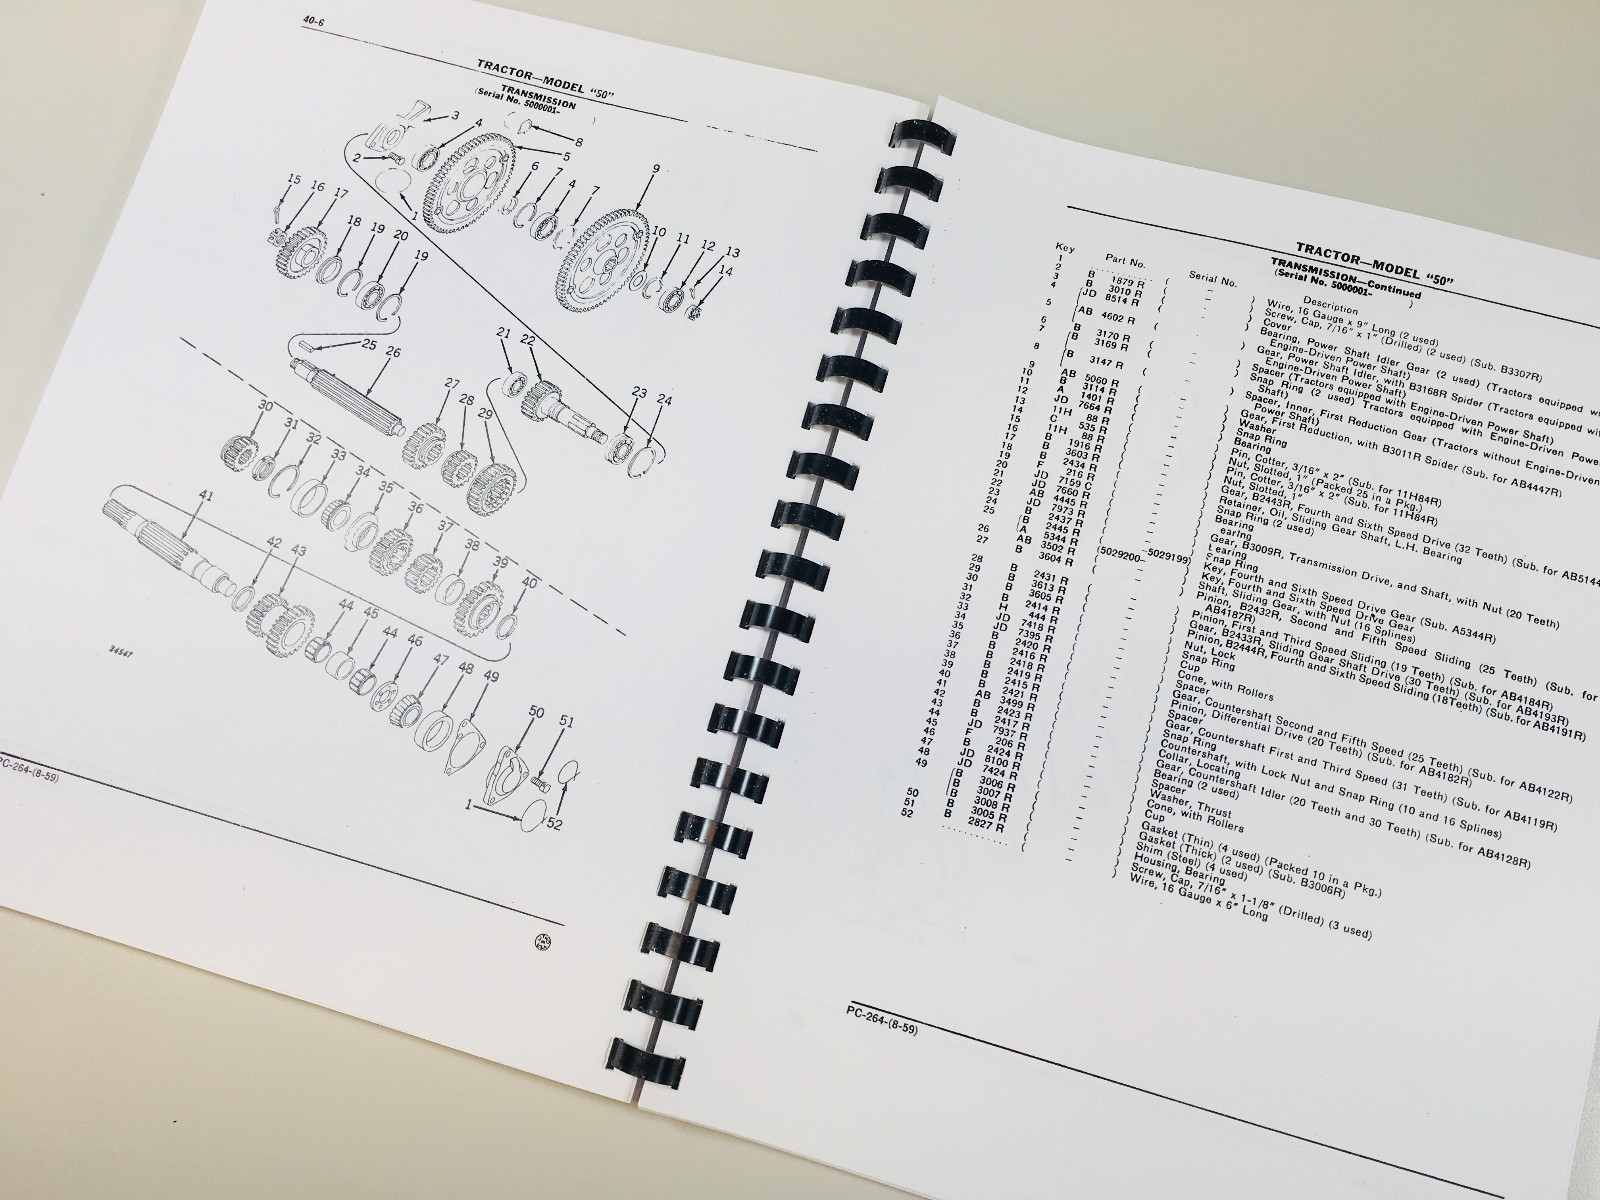 40-6
TRACTOR—MODEL "50"
TRANSMISSION
(Serial No. 5000001- )
3
4
8
5
2
1
6
7
4
7
9
15
16
17
18
19
20
19
10
11
12
13
14
25
26
21
22
27
28
29
23
24
30
31
32
33
34
35
36
37
38
39
40
41
42
43
44
45
44
46
47
48
49
50
51
1
52
34547
PC-264-(8-59)
TRACTOR—MODEL "50"
TRANSMISSION—Continued
(Serial No. 5000001- )
Key Part No. Serial No. Description
1 Wire, 16 Gauge x 9" Long (2 used)
2 B 1879 R ( - ) Screw, Cap, 7/16" x 1" (Drilled) (2 used) (Sub. B3307R)
3 B 3010 R ( - ) Cover
4 JD 8514 R ( - ) Bearing, Power Shaft Idler Gear (2 used) (Tractors equipped
Engine-Driven Power Shaft)
5 AB 4602 R ( - ) Gear, Power Shaft Idler, with B3168R Spider (Tractors equipped
Engine-Driven Power Shaft)
6 B 3170 R ( - ) Spacer (Tractors equipped with Engine-Driven Power Shaft)
7 B 3169 R ( - ) Snap Ring (2 used) Tractors equipped with Engine-Driven Power
Shaft)
8 B 3147 R ( - ) Spacer, Inner, First Reduction Gear (Tractors without Engine-Driven
Power Shaft)
9 AB 5060 R Gear, First Reduction, with B3011R Spider (Sub. for AB4447R)
10 B 3114 R Washer
11 A 1401 R Snap Ring
12 JD 7664 R Bearing
13 11H 88 R Pin, Cotter, 3/16" x 2" (Sub. for 11H84R)
14 C 535 R Nut, Slotted, 1" (Packed 25 in a Pkg.)
15 11H 88 R Pin, Cotter, 3/16" x 2" (Sub. for 11H84R)
16 B 1916 R Nut, Slotted, 1"
17 B 3603 R Gear, B2443R, Fourth and Sixth Speed Drive (32 Teeth) (Sub. for AB5144
18 B 2434 R Retainer, Oil, Sliding Gear Shaft, L.H. Bearing
19 F 216 R Snap Ring (2 used)
20 JD 7159 C Bearing
21 JD 7660 R earing
22 AB 4445 R Gear, B3009R, Transmission Drive, and Shaft, with Nut (20 Teeth)
23 JD 7973 R earing
24 B 2437 R Snap Ring
25 B 2445 R ( -5029199) Key, Fourth and Sixth Speed Drive Gear (Sub. A5344R)
A 5344 R (5029200- ) Key, Fourth and Sixth Speed Drive Gear
26 AB 3502 R Shaft, Sliding Gear, with Nut (16 Splines)
27 B 3604 R Pinion, B2432R, Second and Fifth Speed Sliding (25 Teeth) (Sub. for
AB4187R)
28 B 2431 R Pinion, First and Third Speed Sliding (19 Teeth) (Sub. for AB4184R)
29 B 3613 R Gear, B2433R, Sliding Gear Shaft Drive (30 Teeth) (Sub. for AB4193R)
30 B 3605 R Pinion, B2444R, Fourth and Sixth Speed Sliding (18Teeth) (Sub. for AB4191R)
31 B 2414 R Nut, Lock
32 H 444 R Snap Ring
33 JD 7418 R Cup
34 JD 7395 R Cone, with Rollers
35 B 2420 R Spacer
36 B 2416 R Gear, Countershaft Second and Fifth Speed (25 Teeth) (Sub. for AB4122R)
37 B 2418 R Pinion, Differential Drive (20 Teeth) (Sub. for AB4182R)
38 B 2419 R Spacer
39 B 2415 R Gear, Countershaft First and Third Speed (31 Teeth) (Sub. for AB4119R)
40 B 2421 R Snap Ring
41 AB 3499 R Countershaft, with Lock Nut and Snap Ring (10 and 16 Splines)
42 B 2423 R Collar, Locating
43 B 2417 R Gear, Countershaft Idler (20 Teeth and 30 Teeth) (Sub. for AB4128R)
44 JD 7937 R Bearing (2 used)
45 F 206 R Spacer
46 B 2424 R Washer, Thrust
47 JD 8100 R Cone, with Rollers
48 JD 7424 R Cup
49 B 3006 R Gasket (Thin) (4 used) (Packed 10 in a Pkg.)
B 3007 R Gasket (Thick) (2 used) (Sub. B3006R)
B 3008 R Shim (Steel) (4 used)
50 B 3005 R Housing, Bearing
51 B 2827 R Screw, Cap, 7/16" x 1-1/8" (Drilled) (3 used)
52 Wire, 16 Gauge x 6" Long
PC-264-(8-59)